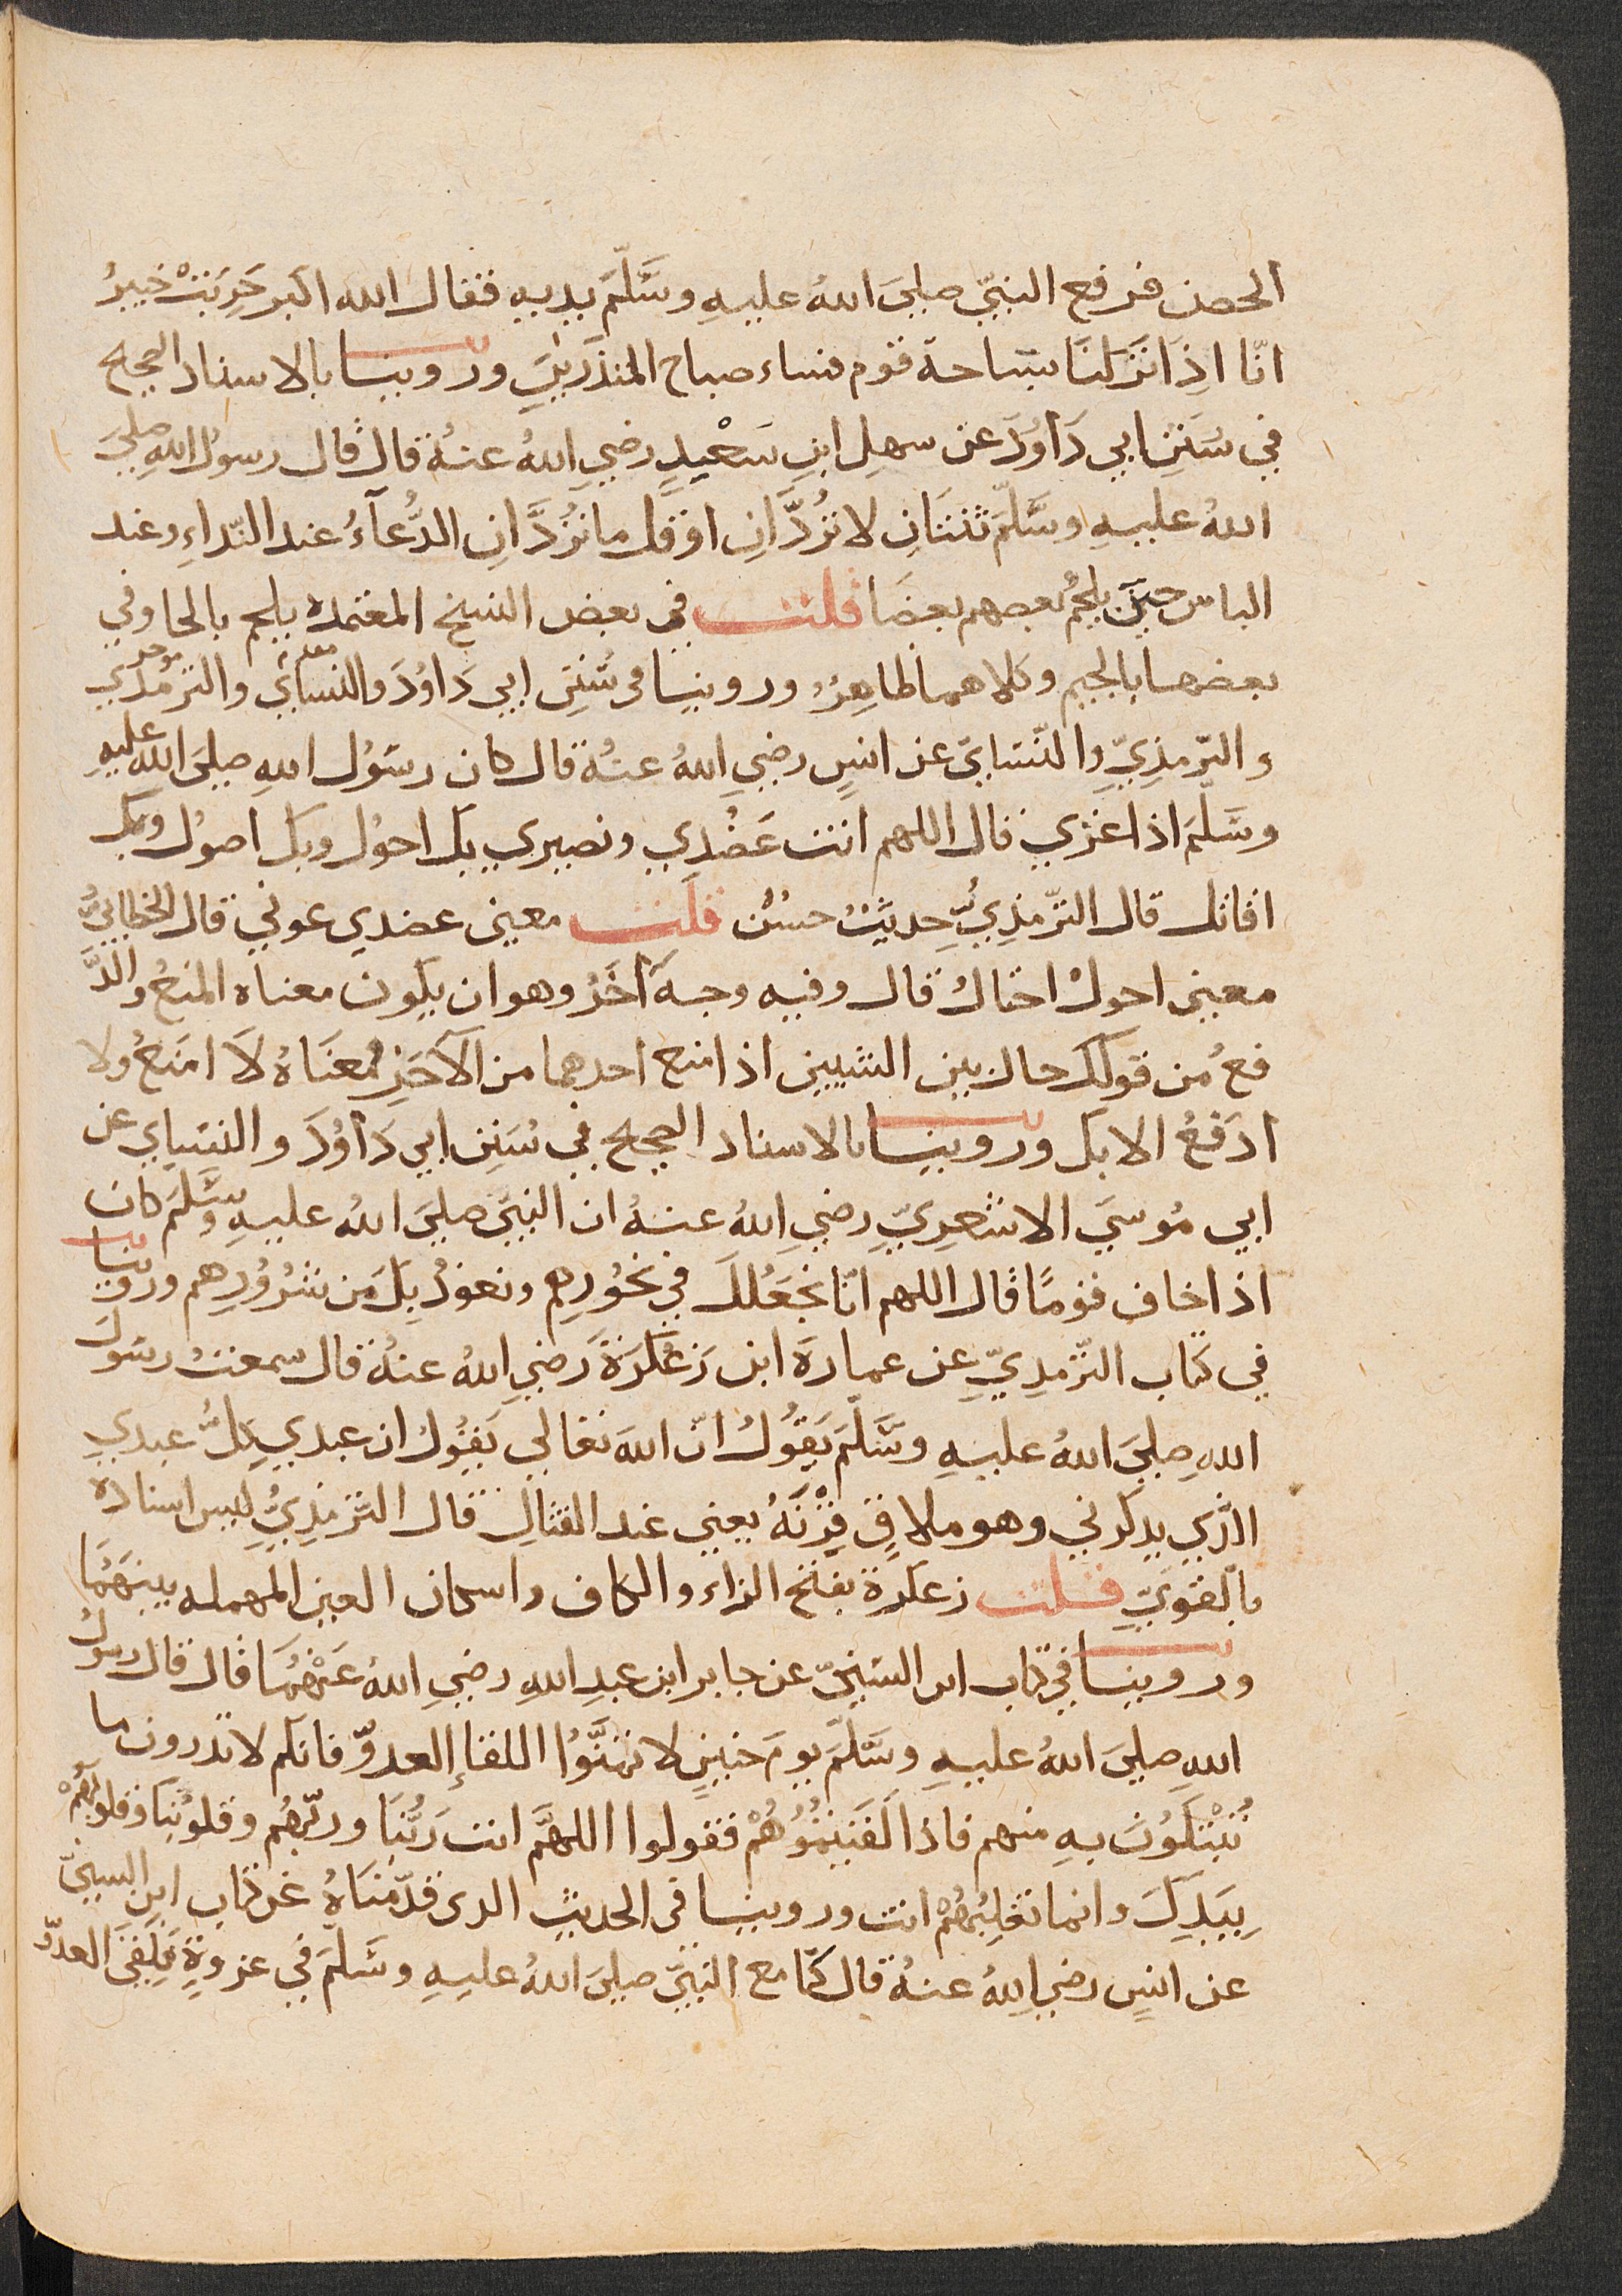 الحصن فرفع النبيّ صليَ اللهُ عليهِ وسَّلّمَ يديه فقال الله اكبر خَرِبَتْ خيبرُ
انّا اذِا نَزَلنَا بسَاحة قوم فساء صباح المنذَرِينَ وروينا بالاسناد الصحيح
في سُنَنِ ابي دَاوُدَ عن سهلِ ابنِ سَعْيدٍ رضيِ اللهُ عنهُ قال قال رسولُ اللهِ صليَ
اللهُ عليهِ وسَّلّمَ ثنتَانِ لا تُردَّانِ اوَ قل ما تُردَّانِ الدُّعآءُ عند النّداءِ وعند
الباس حينَ يلجمُ بعضهم بعضَا قلت في بعض النسخ المعتمدة يلجم بالحا وفي
بعضها بالجيم وكلاهما ظاهِرُ وروينا في سُنَنِ ابي دَاوُدَ والنسائي والترمُذي
و الترّمذِيّ والنّسَايّ عن انسٍ رضيِ اللهُ عنهُ قال كان رسَوُل اللهِ صليَ الله عليهِ
وسَّلّمَ اذا غزي قال اللهم انت عَضُدِي ونصيري بك احوُل وبك اصوُل وبك
اقاتل قال الترّمذِيُّ حِديثُ حسُنُ قلت معنى عضدي عوني قال الخطابيُّ
معنى احولُ احتالُ قال وفيه وجهَ آخَرُ وهو ان يكون معناه المنعُ والدَّ
فعُ من قولك حال بين الشيين اذا منع احدهما من الآخَرِ فمعنَاهُ لَا امنَعُ ولا
ادَفعُ الا بك وروينا بالاسناد الصحيح في سُنَنِ ابي دَاوُدَ والنسَاي عن
ابي مُوسيَ الاشعِريّ رضيِ اللهُ عنهُ ان النبيّ صليَ اللهُ عليهِ وسَّلّمَ كان
اذا خاف قومًا قال اللهم انّا نجعَلكَ في نحُورِهِم ونعوذُ بِكَ مِن شرُوُرِهم وروينا
في كتاب الترّمِذِيّ عن عمارةَ ابن زَعْكَرَةَ رَضيِ اللهُ عنهُ قال سمعتُ رسَولَ
اللهِ صليَ اللهُ عليهِ وسَّلّمَ يَقوُلُ انّ اللهَ تعالي يَقوُلُ ان عبدي كلُّ عبدي
الذّي يذكرني وهو ملاقٍ قِرْنَهُ يعني عند القتالِ قال الترمذِيُّ ليس اسناده
بالقويّ قلت زعكرة بفتح الزاء والكاف واسكان العين المهمله بينهَمَا
وروينا في كتاب ابن السَنيّ عن جابر ابن عبدِ اللهِ رضيِ اللهُ عَنْهُمَا قال قال رسولُ
اللهِ صليَ اللهُ عليهِ وسَّلّمَ يومَ حنينٍ لا تتمنَّوُا اللقاءَ العدوّ فانكم لا تدرون ما
تُبْتَلَوُنَ بهِ منهم فاذا لَقَيتمُوُهُمْ فقولوا اللهَّم انت رَبُّنَا وربّهُم وقلوُبُنَا وقلُوبُهُمْ
بِيَدِكَ وانما تغلِبُهُمْ انت وروينا في الحديثِ الدى قدّمنَاهُ عن كتاب ابن السنيّ
عن انسٍ رضيِ اللهُ عنهُ قال كنّا مع النبيّ صليَ اللهُ عليهِ وسَّلّمَ في غزوةٍ فلَقيَ العدوّ